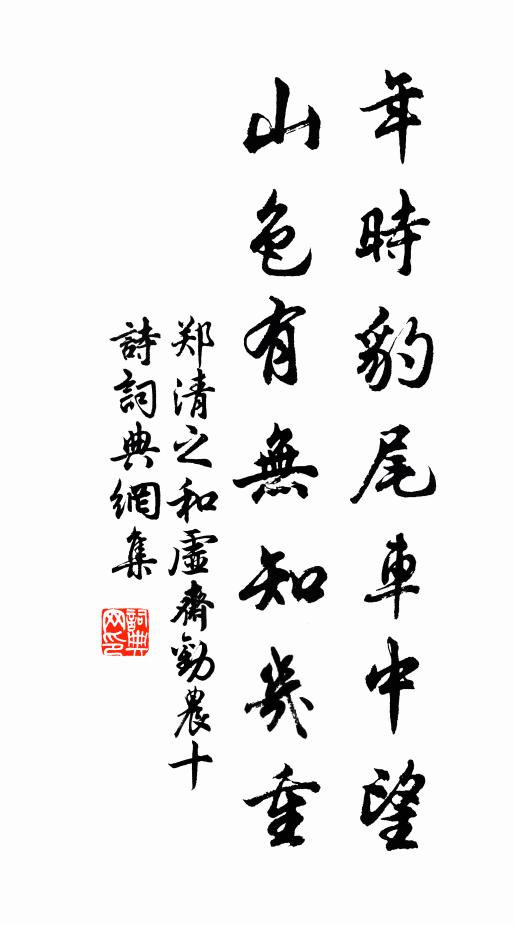 年時豹尾車中望
山色有無知幾重
郑清之和虛齋勸農十
詩詞典網集
詞典
网印